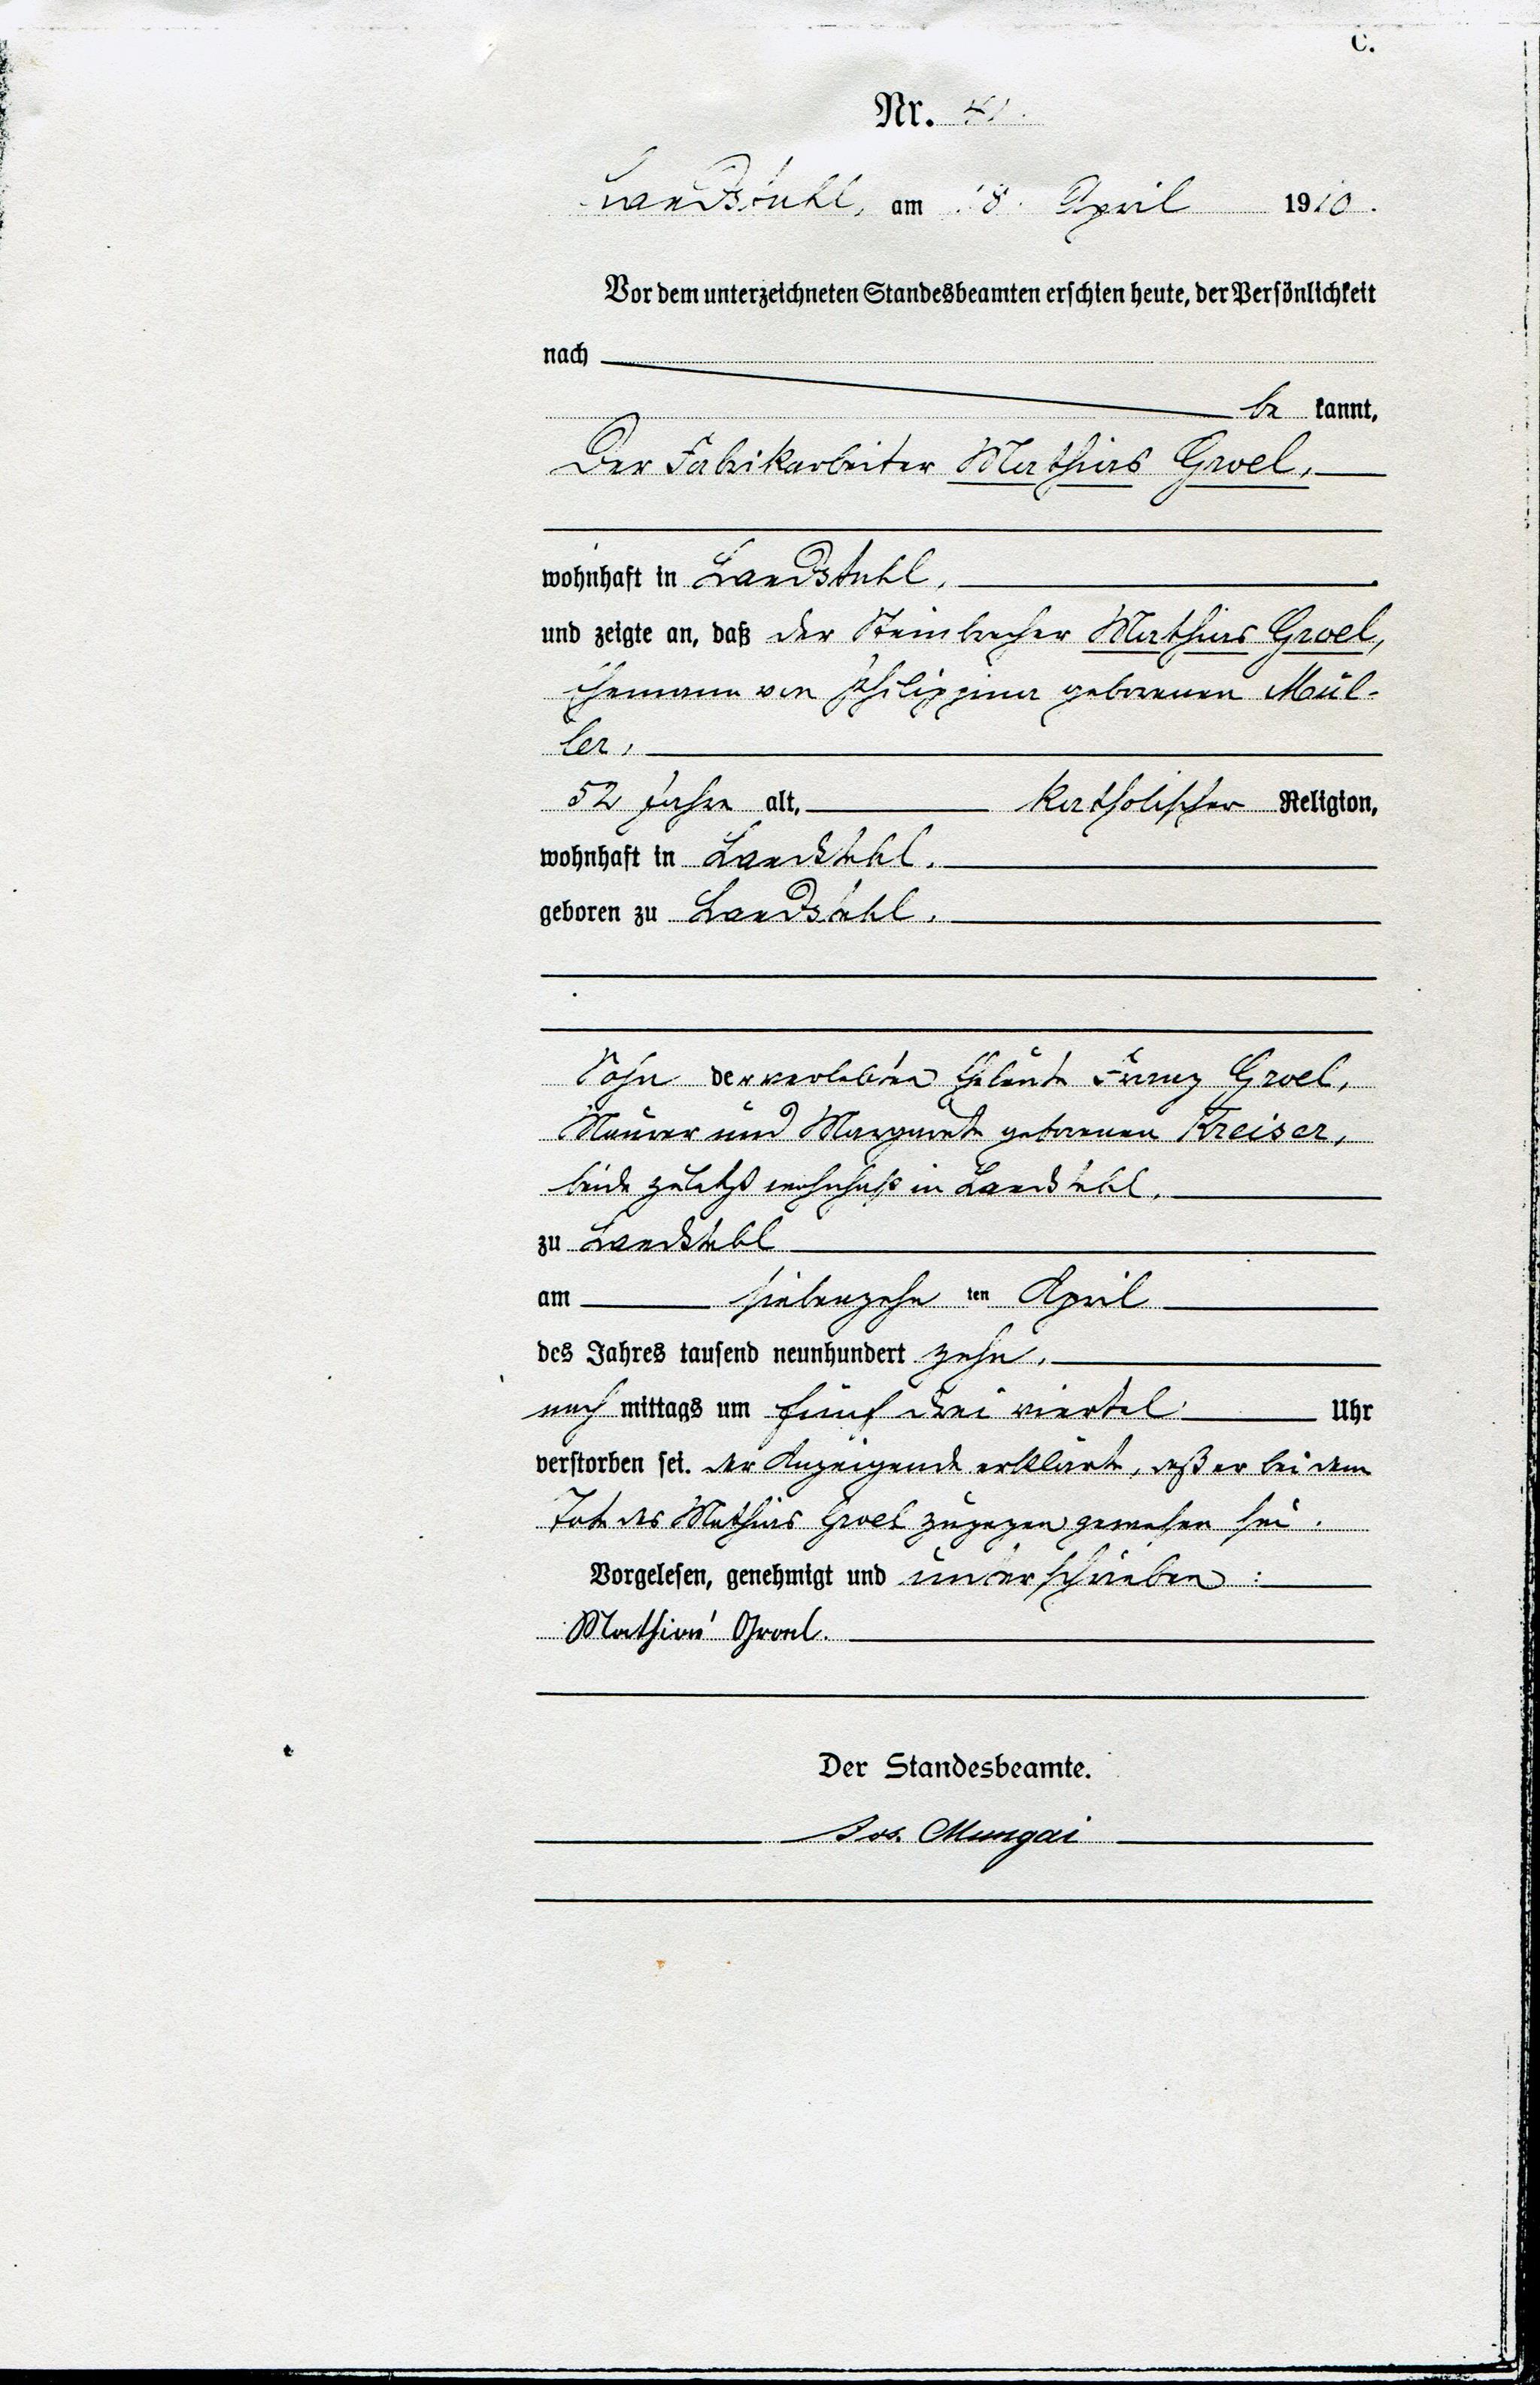 C.
Nr. 41.
Landstuhl, am 18. April 1910.
Vor dem unterzeichneten Standesbeamten erschien heute, der Persönlichkeit
nach
be kannt,
Der Fabrikarbeiter Mathias Groel,
wohnhaft in Landstuhl,
und zeigte an, daß der Steinbrecher Mathias Groel,
Ehemann von Philippina geborenen Mül-
ler,
52 Jahre alt, katholischer Religion,
wohnhaft in Landstuhl,
geboren zu Landstuhl,
Sohn der verlebten Eheleute Franz Groel,
Maurer und Margareta geborenen Kreiser,
beide zuletzt wohnhaft in Landstuhl,
zu Landstuhl
am siebenzehn ten April
des Jahres tausend neunhundert zehn,
nach mittags um fünf drei viertel Uhr
verstorben sei. Der Anzeigende erklärte, daß er bei dem
Tode des Mathias Groel zugegen gewesen sei.
Vorgelesen, genehmigt und unterschrieben:
Mathias Groel.
Der Standesbeamte.
Jos. Mungai